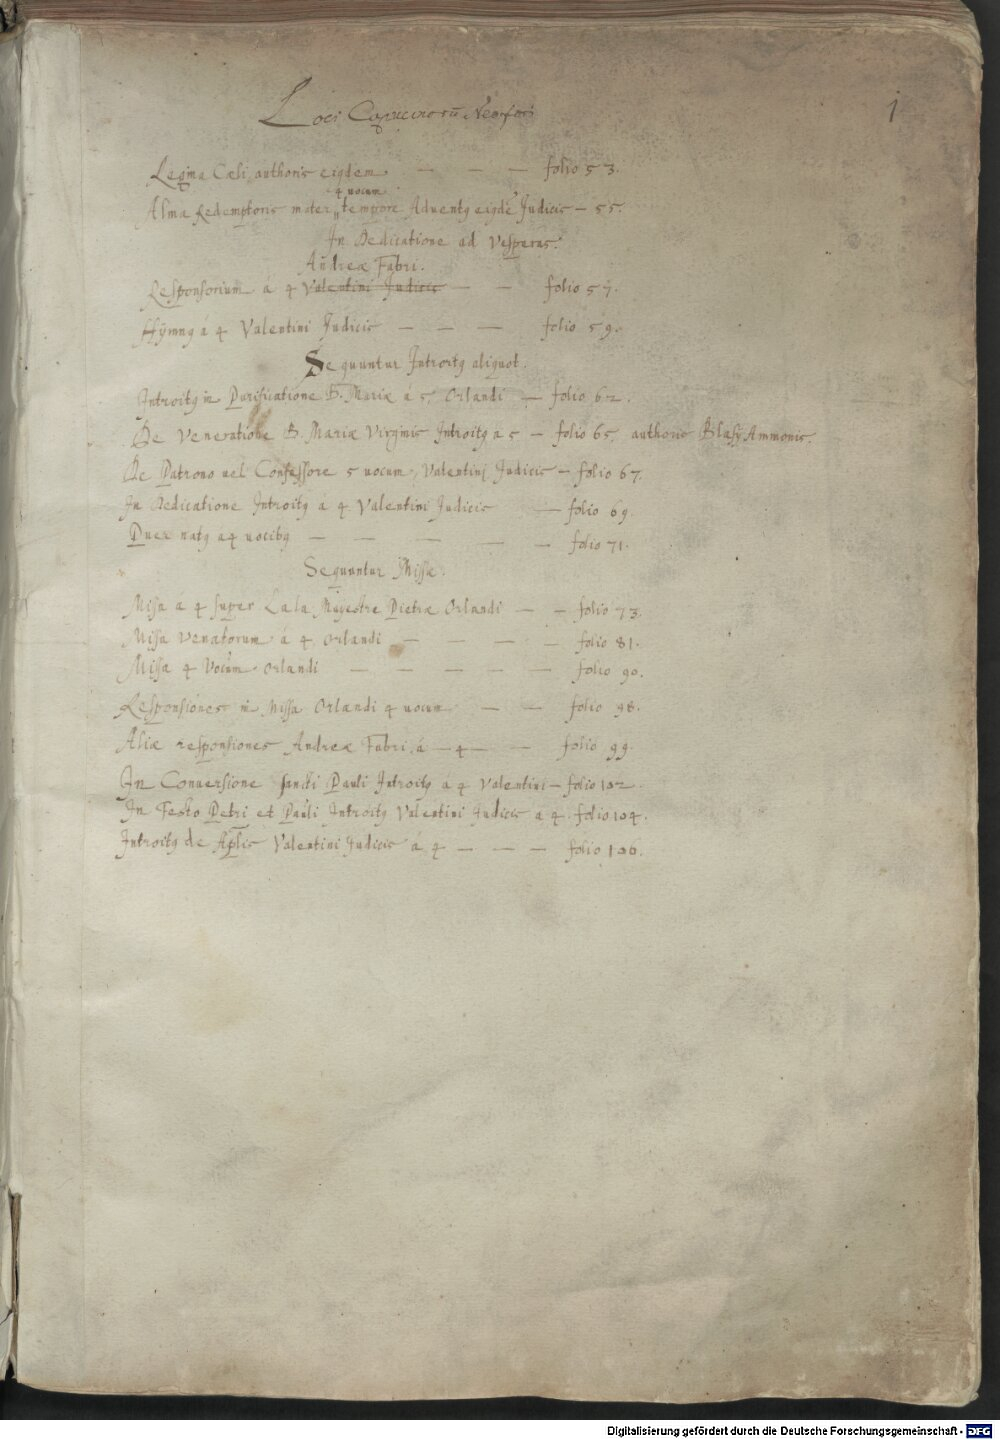 1
Loci Capucinorū Neof
Regina Cæli authoris eiqdem — — — folio 53.
4 uocum
Alma Redemptoris mater, tempore Aduentq eiqdē Judicis — 55.
In Dedicatione ad Vesperas.
Andreæ Fabri.
Responsorium á 4 Valentini Judicis — — folio 57.
Hÿmnq á 4 Valentini Judicis — — — folio 59.
Sequuntur Introitq aliquot.
Introitq in Purificatione B. Mariæ á 5 Orlandi — folio 62.
De Veneratione B. Mariæ Virginis Introitq a 5 — folio 65, authoris Blasÿ Ammonis.
De Patrono uel Confessore 5 uocum, Valentini Judicis — folio 67.
In Dedicatione Introitq á 4 Valentini Judicis — folio 69.
Puer natq a 4 uocibq — — — — — folio 71.
Sequuntur Missæ.
Missa á 4 super La la Mayestre Pietræ Orlandi — — folio 73.
Missa Venatorum á 4, Orlandi — — — — folio 81.
Missa 4 Vocum Orlandi — — — — — folio 90.
Responsiones in Missa Orlandi 4 uocum — — folio 98.
Aliæ responsiones Andreæ Fabri á — 4 — — folio 99.
In Conuersione sancti Pauli Introitq á 4 Valentini — folio 102.
In Festo Petri et Pauli Introitq Valentini Judicis a 4. folio 104.
Introitq de Aplīs Valentini Judicis á 4 — — — folio 106.
Digitalisierung gefördert durch die Deutsche Forschungsgemeinschaft - DFG